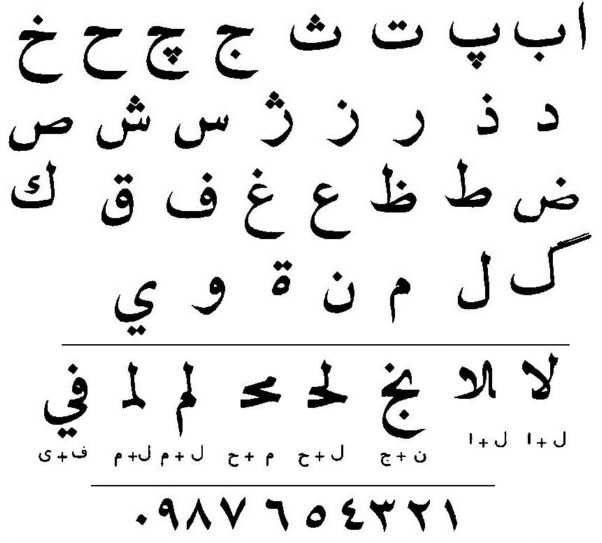 ا ب پ ت ث ج چ ح خ
د ذ ر ز ژ س ش ص
ض ط ظ ع غ ف ق ك
گ ل م ن ة و ي
لا لا نج لح مح لم لم في
ل+ا ل+ا ن+ج ل+ح م+ح ل+م ل+م ف+ى
٠٩٨٧٦٥٤٣٢١